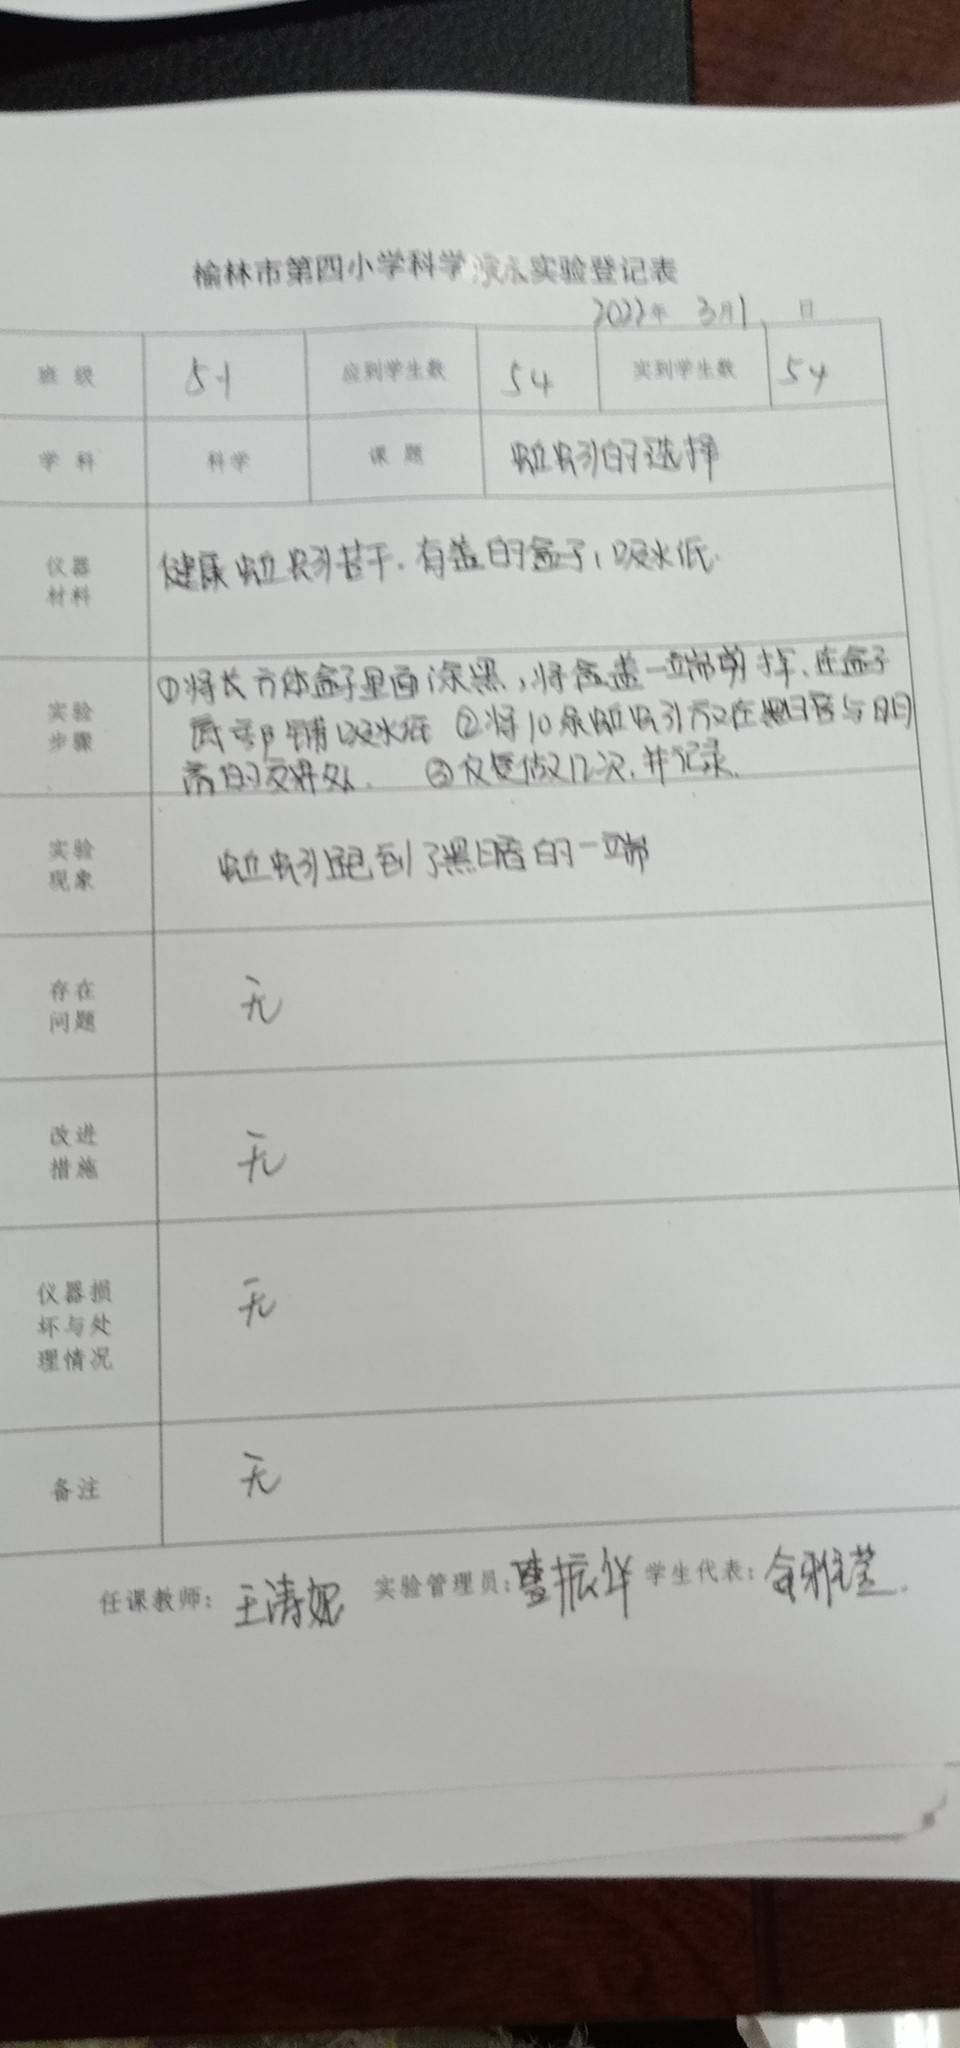 榆林市第四小学科学演示实验登记表
2022年 3月1 日
班级 5.1 应到学生数 54 实到学生数 54
学科 科学 课题 蚯蚓的选择
仪器材料 健康蚯蚓若干.有盖的盒子,吸水纸.
实验步骤 ①将长方体盒子里面涂黑,将盒盖一端剪掉.在盒子
底部铺吸水纸 ②将10条蚯蚓放在黑暗与明
亮的交界处. ③反复做12次,并记录.
实验现象 蚯蚓跑到了黑暗的一端
存在问题 无
改进措施 无
仪器损坏与处理情况 无
备注 无
任课教师: 王涛妮 实验管理员: 振华 学生代表: 雅莹.